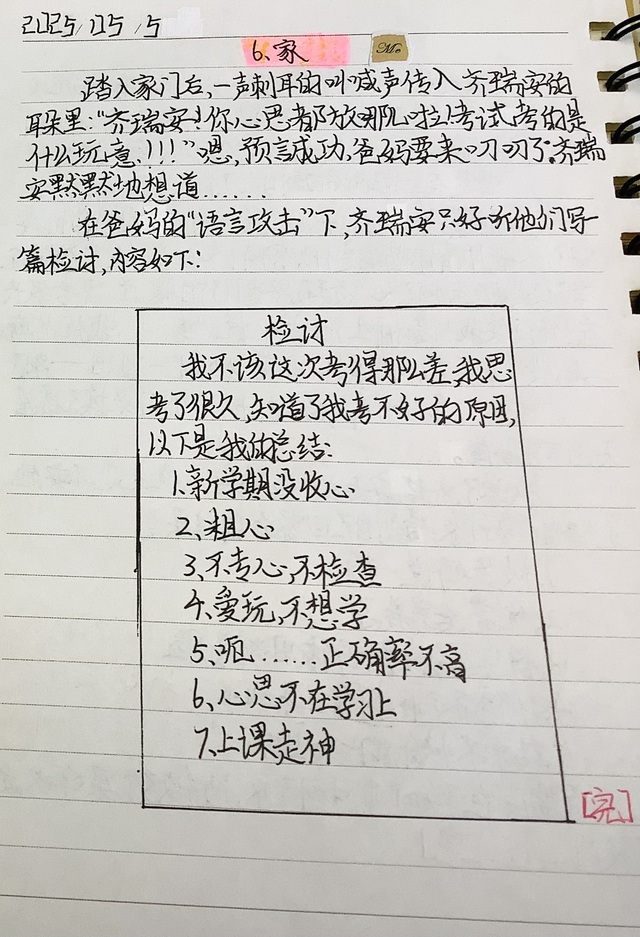 2025/05/5
6、家
Me
踏入家门后,一声刺耳的叫喊声传入齐瑞安的
耳朵里:“齐瑞安!你心思都放那儿啦!考试考的是
什么玩意!!!”嗯,预言成功,爸妈要来叨叨了。齐瑞
安默默地想道……
在爸妈的“语言攻击”下,齐瑞安只好听他们写一
篇检讨,内容如下:
检讨
我不该这次考得那么差,我思
考了很久,知道了我考不好的原因,
以下是我的总结:
1、新学期没收心
2、粗心
3、不专心,不检查
4、爱玩,不想学
5、呃……正确率不高
6、心思不在学习上
7、上课走神
[完]